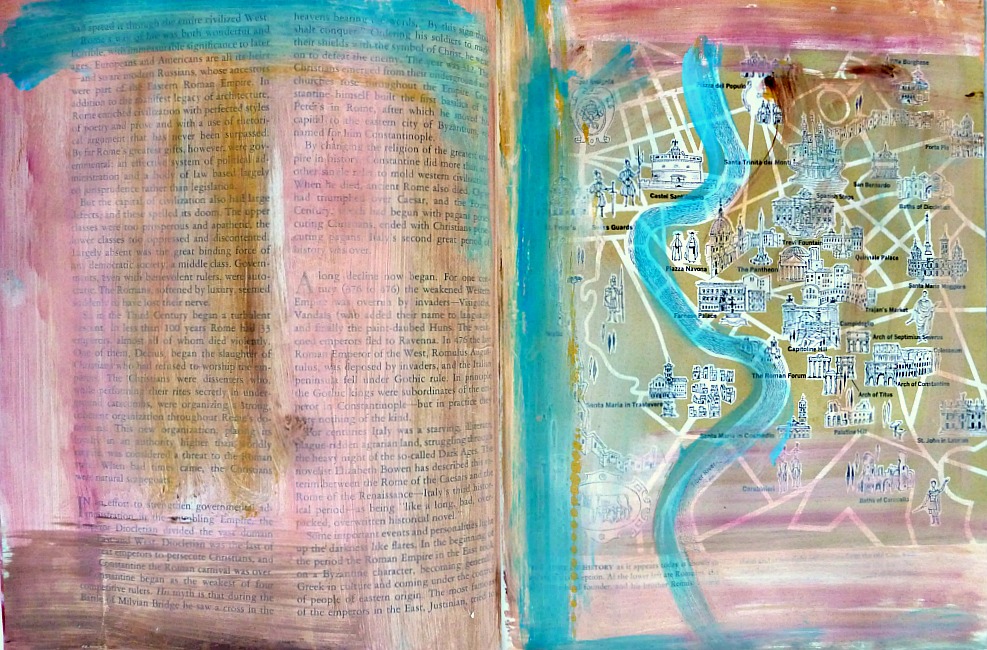 had spread it through the entire civilized West.
was of
was both wonderful and
significance to later
ages. Europeans and Americans are all its heirs
and so are modern Russians, whose ancestors
were part of the Eastern Roman Empire. In
addition to the manifest legacy of architecture,
Rome enriched civilization with perfected styles
of poetry and prose and with a use of rhetori-
cal argument that has never been surpassed.
By far Rome's greatest gifts, however, were gov-
ernmental: an effective system of political ad-
ministration and a of law based largely
on jurisprudence rather than legislation.
But the capital of civilization also had large
defects, and these spelled its doom. The upper
classes were too prosperous and apathetic, the
lower classes too oppressed and discontented.
Largely absent was the great binding force of
any democratic society, a middle class. Govern-
ments, even with benevolent rulers, were auto-
cratic. The Romans, softened by luxury, seemed
to have lost their nerve.
in the Third Century began a turbulent
descent. In less than 100 years Rome had
emperors, almost all of whom died violently.
One of them, Decius, began the slaughter of
Christians who had refused to worship the
The Christians were dissenters who,
while performing their rites secretly in under-
catacombs, were organizing a strong,
organization throughout Rome
This new organization,
in an authority higher than
was considered a threat to the Roman
When bad times came, the Christians
were natural scapegoats.
IN an effort to strengthen governmental ad-
ministration in the crumbling Empire, the
Diocletian divided the vast domain
East and West. Diocletian was the last of
great emperors to persecute Christians, and
Constantine the Roman carnival was over
Constantine began as the weakest of four
competitive rulers. His myth is that during the
Battle of Milvian Bridge he saw a cross in the
heavens bearing words, "By this sign
shalt conquer." Ordering his soldiers to
their shields with the symbol of Christ, he
on to defeat the enemy. The year was 312. The
Christians emerged from their underground
churches throughout the Empire. Con-
stantine himself built the first basilica of St.
Peter's in Rome, after which he moved
capital to the eastern city of Byzantium,
named for him Constantinople
By changing the religion of the greatest em-
pire in history, Constantine did more than
other single to mold western civiliza
When he died, ancient Rome also died.
had triumphed over Caesar, and the
Century, had begun with pagans perse-
cuting Christians, ended with Christians perse-
cuting pagans. Italy's second great period
history was over.
A long decline now began. For one cen-
tury (376 to 476) the weakened Western
Empire was overrun by invaders—Visigoths,
Vandals (who added their name to language)
and finally the paint-daubed Huns. The west-
ern emperors fled to Ravenna. In 476 the last
Roman Emperor of the West, Romulus Augus-
tulus, was deposed by invaders, and the Italian
peninsula fell under Gothic rule. In principle
the Gothic kings were subordinates of the em-
peror in Constantinople—but in practice they
were nothing of the kind.
For centuries Italy was a starving, illiterate,
plague-ridden agrarian land, struggling through
the heavy night of the so-called Dark Ages. The
novelist Elizabeth Bowen has described this in-
terim between the Rome of the Caesars and the
Rome of the Renaissance—Italy's third histor-
ical period—as being "like a long, bad, over-
packed, overwritten historical novel."
Some important events and personalities light
up the darkness like flares. In the beginning of
the period the Roman Empire in the East took
on a Byzantine character, becoming
Greek in culture and coming under the
of people of eastern origin. The most famous
of the emperors in the East, Justinian, tried to
Villa Borghese
Piazza del Popolo
Porta Pia
Santa Trinita dei Monti
San Bernardo
Castel Sant
Spanish Steps
Baths of Diocletian
Swiss Guards
Trevi Fountain
Quirinale Palace
Piazza Navona
The Pantheon
Santa Maria Maggiore
Trajan's Market
Farnese Palace
Campidoglio
Arch of Septimius Severus
Capitoline Hill
Colosseum
The Roman Forum
Arch of Constantine
Arch of Titus
Santa Maria in Trastevere
Palatine Hill
Santa Maria in Cosmedin
St. John in Lateran
Carabinieri
Baths of Caracalla
HISTORY as it appears today